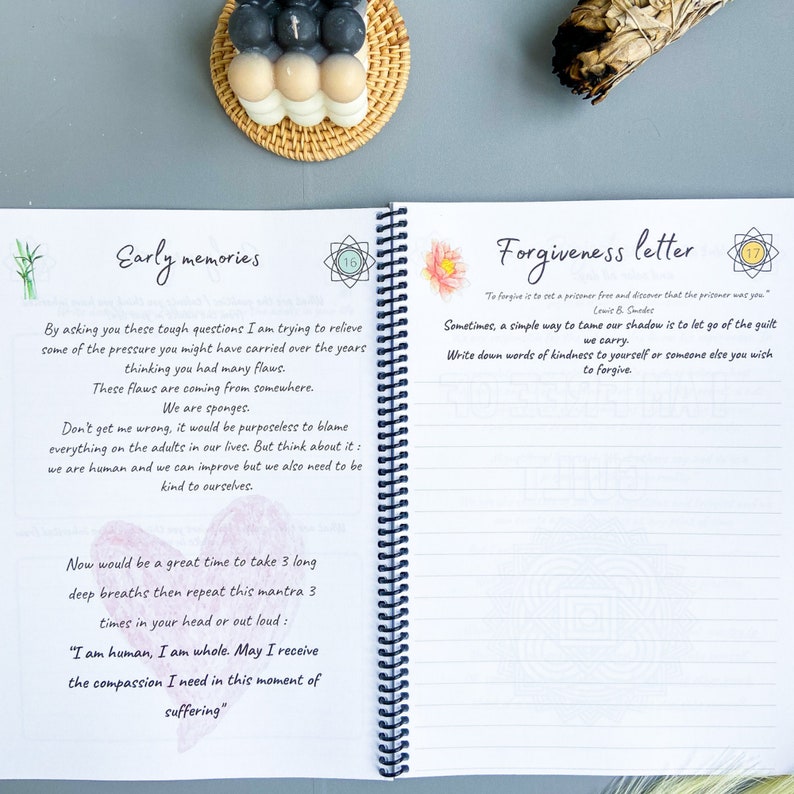 Early memories
16
By asking you these tough questions I am trying to relieve
some of the pressure you might have carried over the years
thinking you had many flaws.
These flaws are coming from somewhere.
We are sponges.
Don't get me wrong, it would be purposeless to blame
everything on the adults in our lives. But think about it :
we are human and we can improve but we also need to be
kind to ourselves.
Now would be a great time to take 3 long
deep breaths then repeat this mantra 3
times in your head or out loud :
"I am human, I am whole. May I receive
the compassion I need in this moment of
suffering"
Forgiveness letter
17
"To forgive is to set a prisoner free and discover that the prisoner was you."
Lewis B. Smedes
Sometimes, a simple way to tame our shadow is to let go of the guilt
we carry.
Write down words of kindness to yourself or someone else you wish
to forgive.